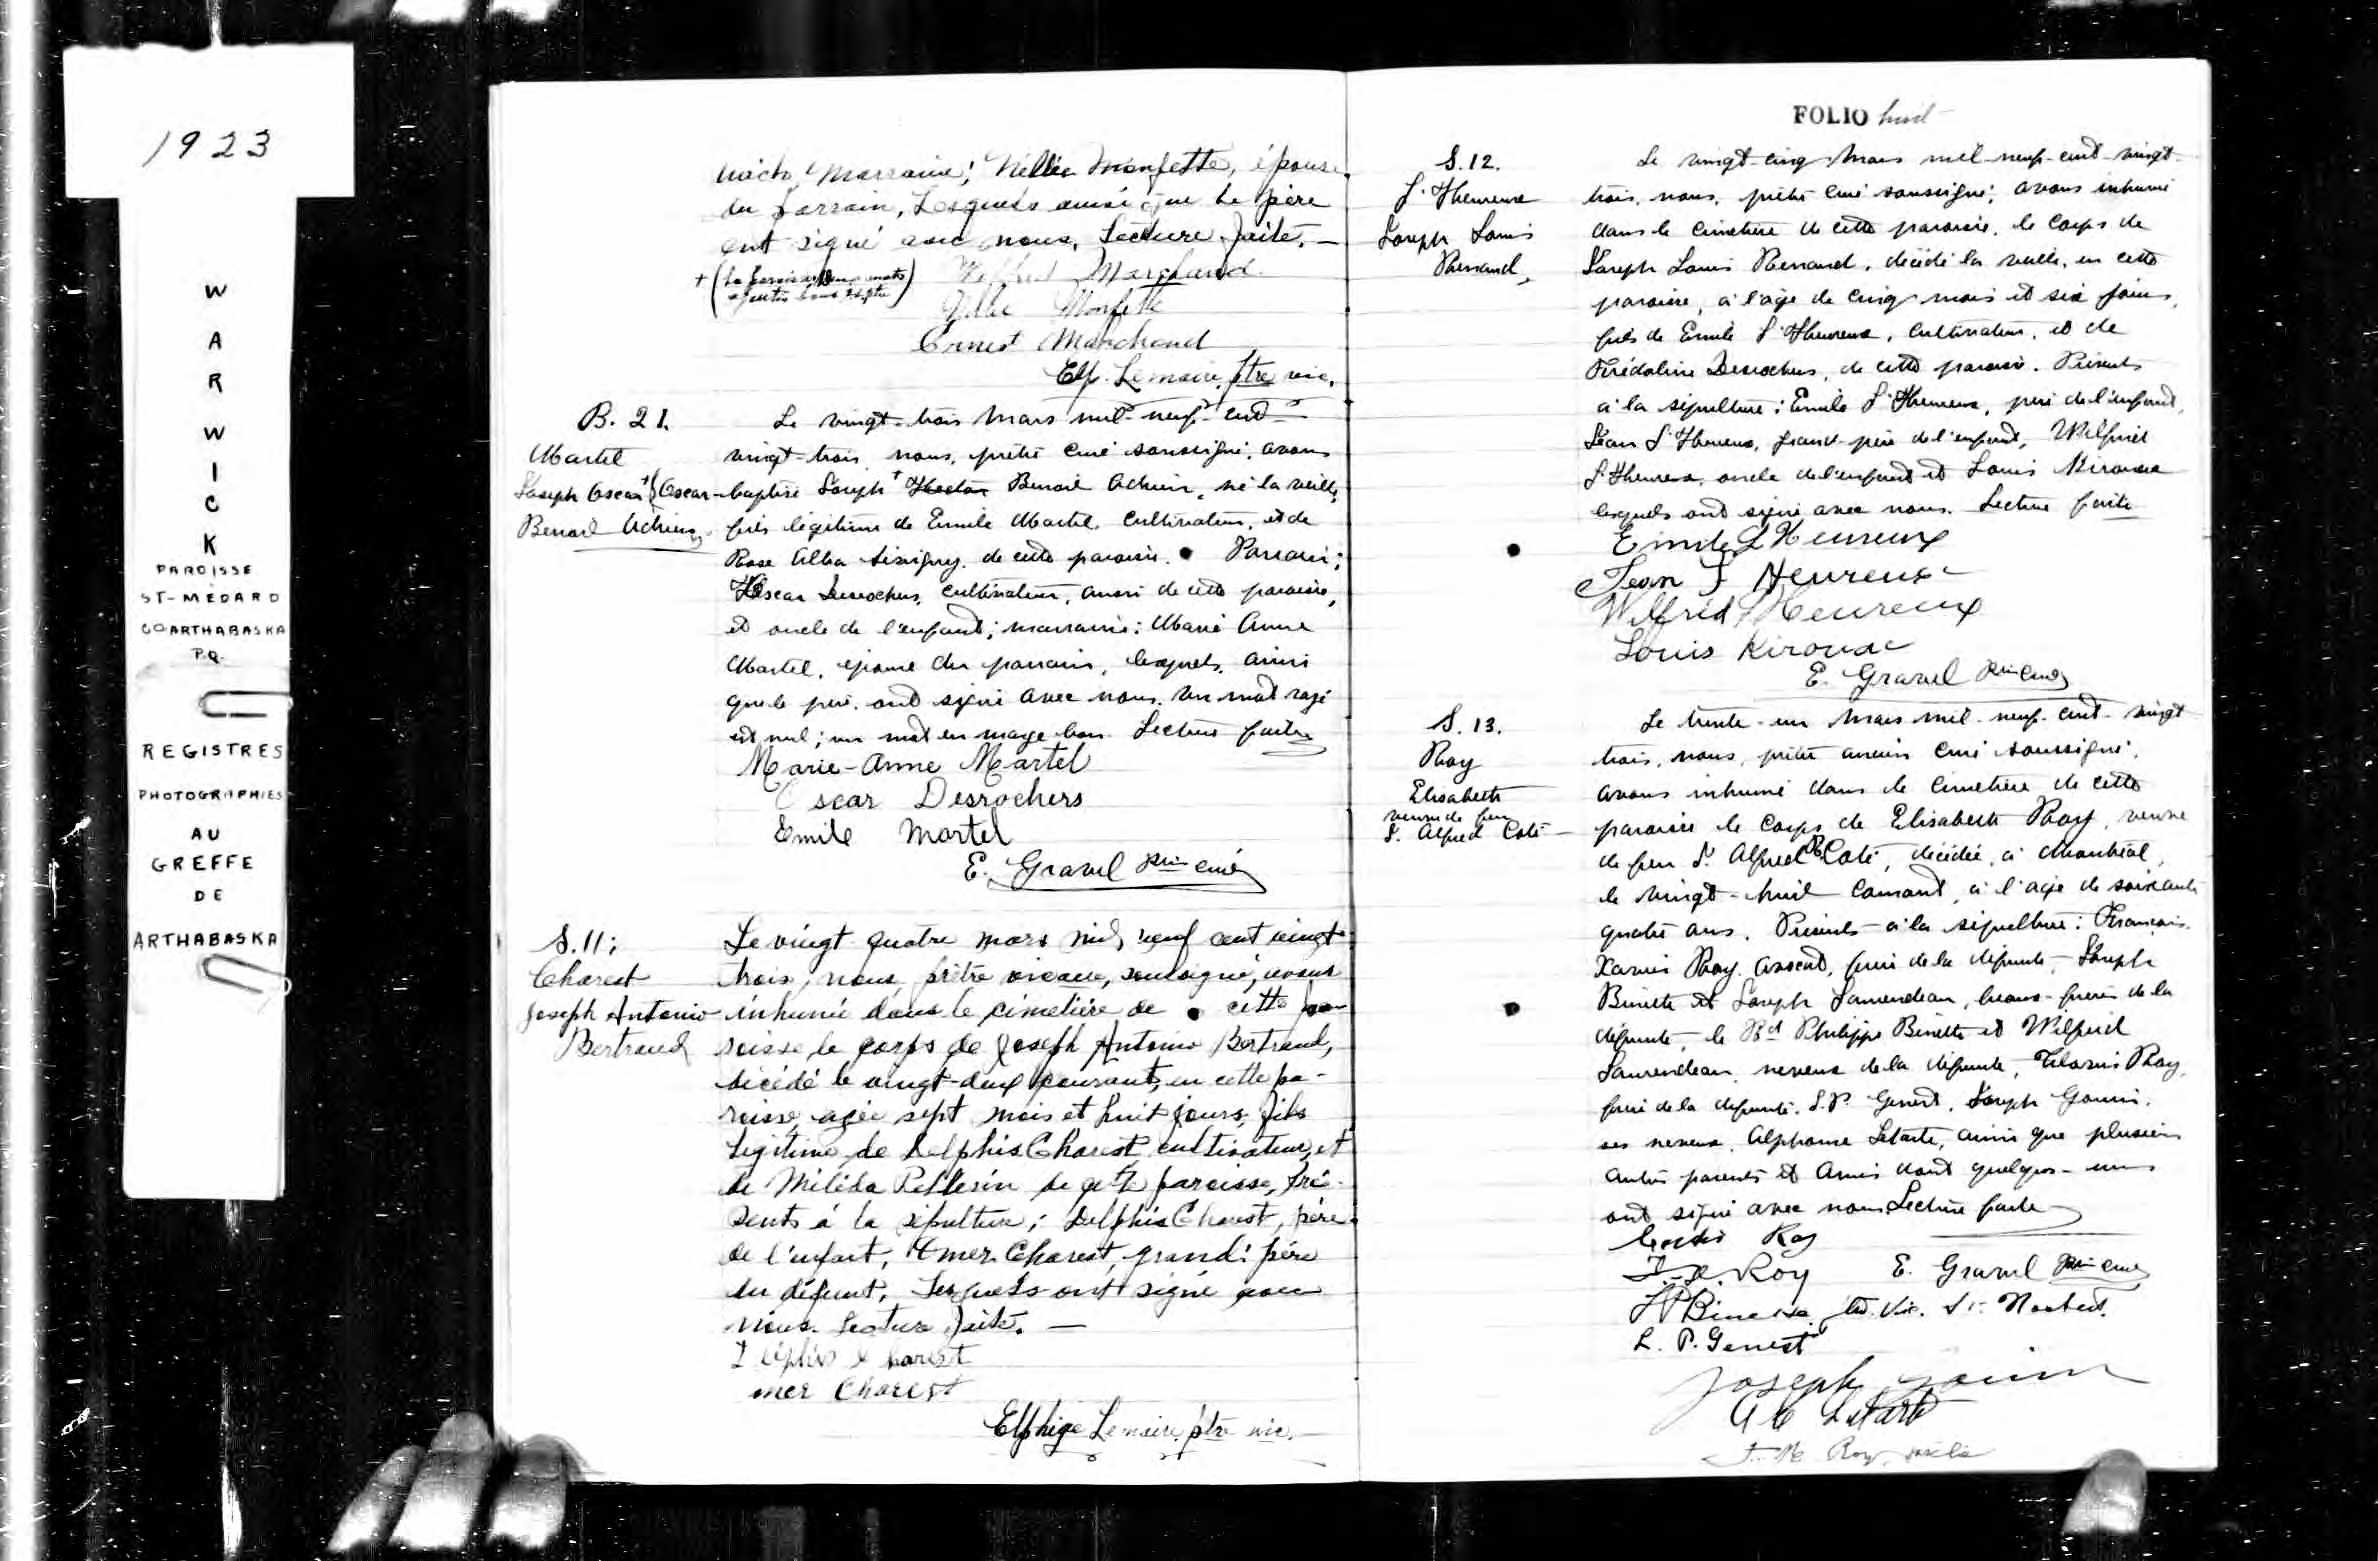 1923
W
A
R
W
I
C
K
PAROISSE
ST-MÉDARD
CO ARTHABASKA
P.Q.
REGISTRES
PHOTOGRAPHIES
AU
GREFFE
DE
ARTHABASKA
Marraine; Nellie Monfette, épouse
du parrain, Lesquels ainsi que le père
ont signé avec nous, Lecture faite. —
Wilfrid Marchand
Nellie Monfette
Ernest Marchand
Elp. Lemaire, ptre vic.
B. 21.
Martel
Joseph Oscar
Benoit Adrien
Le vingt-trois Mars mil-neuf-cent-
vingt-trois, nous, prêtre curé soussigné, avons
(Oscar baptisé Joseph + Hector Benoit Adrien, né la veille,
fils légitime de Emile Martel, cultivateur, et de
Rose Alba Sévigny, de cette paroisse. Parrain;
Oscar Desrochers, cultivateur, aussi de cette paroisse,
et oncle de l'enfant; marraine: Marie Anne
Martel, épouse du parrain, lesquels, ainsi
que le père, ont signé avec nous. Un mot rayé
est nul; un mot en marge bon. Lecture faite
Marie-Anne Martel
Oscar Desrochers
Emile Martel
E. Gravel Ptre curé
S. 11;
Charest
Joseph Antonio
Bertrand
Le vingt-quatre mars mil neuf cent vingt
trois, nous, prêtre vicaire, soussigné, avons
inhumé dans le cimetière de cette pa-
roisse, le corps de Joseph Antonio Bertrand,
décédé le vingt-deux courant, en cette pa-
roisse, agée sept mois et huit jours, fils
légitime de Delphis Charest, cultivateur, et
de Méléda Pellerin de cette paroisse, Pré-
sents à la sépulture; Delphis Charest, père
de l'enfant, Omer Charest, grand-père
du défunt, Lesquels ont signé avec
nous. Lecture faite. —
Delphis Charest
mer Charest
Elphège Lemaire, ptre vic.
FOLIO huit
S. 12.
L'Heureux
Joseph Louis
Renaud,
Le vingt-cinq Mars mil-neuf-cent-vingt-
trois, nous, prêtre curé soussigné, avons inhumé
dans le cimetière de cette paroisse, le corps de
Joseph Louis Renaud, décédé la veille, en cette
paroisse, à l'âge de cinq mois et six jours,
fils de Emile L'Heureux, cultivateur, et de
Desrochers, de cette paroisse. Présents
à la sépulture: Emile L'Heureux, père de l'enfant,
Jean L'Heureux, grand-père de l'enfant, Wilfrid
L'Heureux, oncle de l'enfant et Louis Kirouac
lesquels ont signé avec nous. Lecture faite
Emile L'Heureux
Jean L Heureux
Wilfrid L'Heureux
Louis Kirouac
E. Gravel Ptre curé
S. 13.
Roy
Elisabeth
veuve de feu
S. Alfred Coté
Le trente-un Mars mil-neuf-cent-vingt-
trois, nous, prêtre ancien curé soussigné,
avons inhumé dans le cimetière de cette
paroisse le corps de Elisabeth Roy, veuve
de feu Sr. Alfred Coté, décédée, à Montréal,
le vingt-huit courant, à l'âge de soixante
quatre ans. Présents à la sépulture: François
Xavier Roy, avocat, frère de la défunte, Joseph
Binette et Joseph Laurendeau, beaux-frères de la
défunte, le Rd Philippe Binette et Wilfrid
Laurendeau, neveux de la défunte, Roy,
frère de la défunte, L.P. Genest, Joseph
ses neveux, Alphonse Letarte, ainsi que plusieurs
autres parents et amis dont quelques-uns
ont signé avec nous. Lecture faite
Roy
F.-X. Roy
E. Gravel Ptre curé
J P Binette, ptr. Vic. St. Norbert.
L. P. Genest
Joseph
A C Letarte
Roy